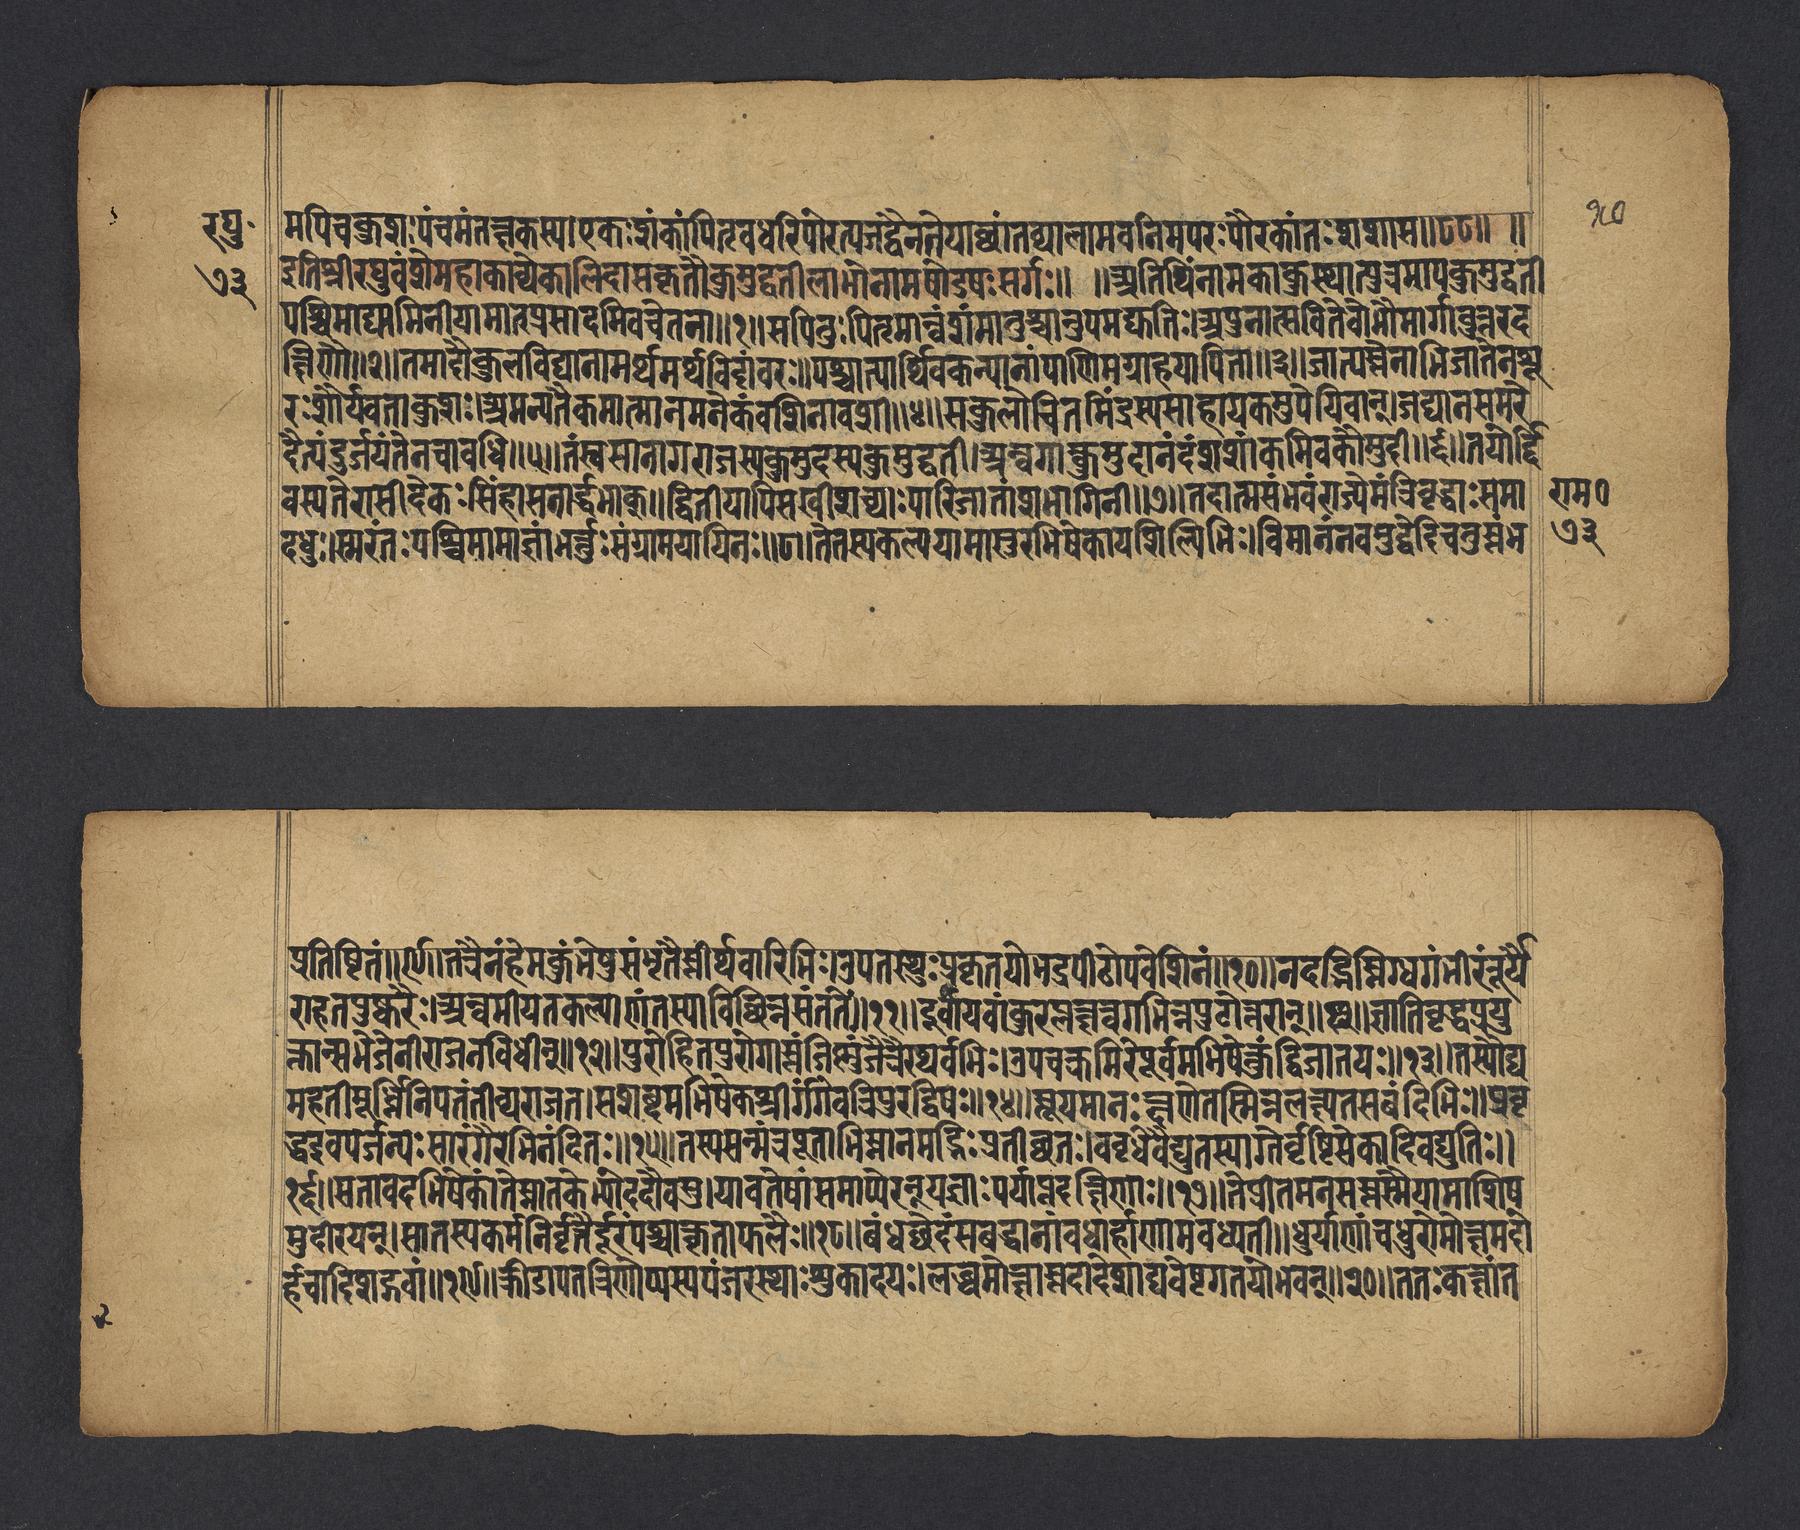 रघु॰
७३
१८०
मपिचकुशः पंचमंतक्षकस्य। एकः शंकांपितृवधरिपोरत्यजद्वैनतेयाछांतव्यालामवनिमपरः पौरकांतः शशाम॥८८॥ ॥
इतिश्रीरघुवंशेमहाकाव्येकालिदासकृतौकुमुद्वतीलाभोनामषोडषः सर्गः॥ ॥अतिथिंनामकाकुस्थात्पुत्रमापकुमुद्वती
पश्चिमाद्यामिनीयामात्प्रसादमिवचेतना॥१॥सपितुः पितृमान्वंशंमातुश्चानुपमद्युतिः। अपुनात्सवितेवोभौमार्गावुत्तरद
क्षिणौ॥२॥तमादौकुलविद्यानामर्थमर्थविदांवरः॥पश्चात्पार्थिवकन्यानांपाणिमग्राहयत्पिता॥३॥जात्यस्तेनाभिजातेनशू
रः शौर्यवताकुशः। अमन्यतैकमात्मानमनेकंवशिनावशी॥४॥सकुलोचितमिंद्रस्यसाहायकमुपेयिवान्। जघानसमरे
दैत्यंदुर्जयंतेनचावधि॥५॥तंस्वसानागराजस्यकुमुदस्यकुमुद्वती। अन्वगात्कुमुदानंदंशशांकमिवकौमुदी॥६॥तयोर्दि
वस्पतेरासीदेकः सिंहासनार्द्धभाक्॥द्वितीयापिसखीशच्याः पारिजातांशभागिनी॥७॥तदात्मसंभवंराज्येमंत्रिवृद्धाः समा
दधुः। स्मरंतः पश्चिमामाज्ञांभर्त्तुः संग्रामयायिनः॥८॥तेतस्यकल्पयामासुरभिषेकायशिल्पिभिः। विमानंनवमुद्वेदिचतुस्तंभ
राम०
७३
प्रतिष्टितं॥९॥तत्रैनंहेमकुंभेषुसंभृतैस्तीर्थवारिभिः। उपतस्थुः प्रकृतयोभद्रपीठोपवेशिनं॥१०॥नदद्भिस्निग्धगंभीरंतूर्यै
राहतपुष्करैः। अन्वमीयतकल्याणंतस्याविछिन्नसंततेः॥११॥दूर्वायवांकुरप्लक्षत्वगभिन्नपुटोत्तरान्॥ज्ञातिवृद्धप्रयु
क्तान्सभेजेनीराजनविधीन्॥१२॥पुरोहितपुरोगास्तंजिस्मुंजैत्रैरथर्वभिः। उपचक्रमिरेपूर्वमभिषेक्तुंद्विजातयः॥१३॥तस्यौघ
महतीमूर्ध्निनिपतंतीव्यराजत। सशब्दमभिषेकश्रीर्गंगेवत्रिपुरद्विषः॥१४॥स्तूयमानः क्षणेतस्मिन्नलक्ष्यतसबंदिभिः॥प्रवृ
द्धइवपर्जन्यः सारंगैरभिनंदितः॥१५॥तस्यसन्मंत्रपूताभिस्नानमद्भिः प्रतीछतः। ववृधेवैद्युतस्याग्नेर्वृष्टिसेकादिवद्युतिः॥
१६॥सतावदभिषेकांतेस्नातकेभ्योददौवसु। यावतेषांसमाप्येरन्यज्ञाः पर्याप्तदक्षिणाः॥१७॥तेप्रीतमनसस्तस्मैयामाशिष
मुदीरयन्। सातस्यकर्मनिर्वृत्तैर्दूरंपश्चात्कृताफलैः॥१८॥बंधछेदंसबद्धानांवधार्हाणामवध्यतां॥धुर्याणांचधुरोमोक्षमदो
हंचादिशद्गवां॥१९॥क्रीडापतत्रिणोप्यस्यपंजरस्थाः शुकादयः। लब्धमोक्षास्तदादेशाद्यथेष्टगतयोभवन्॥२०॥ततः कक्षांत